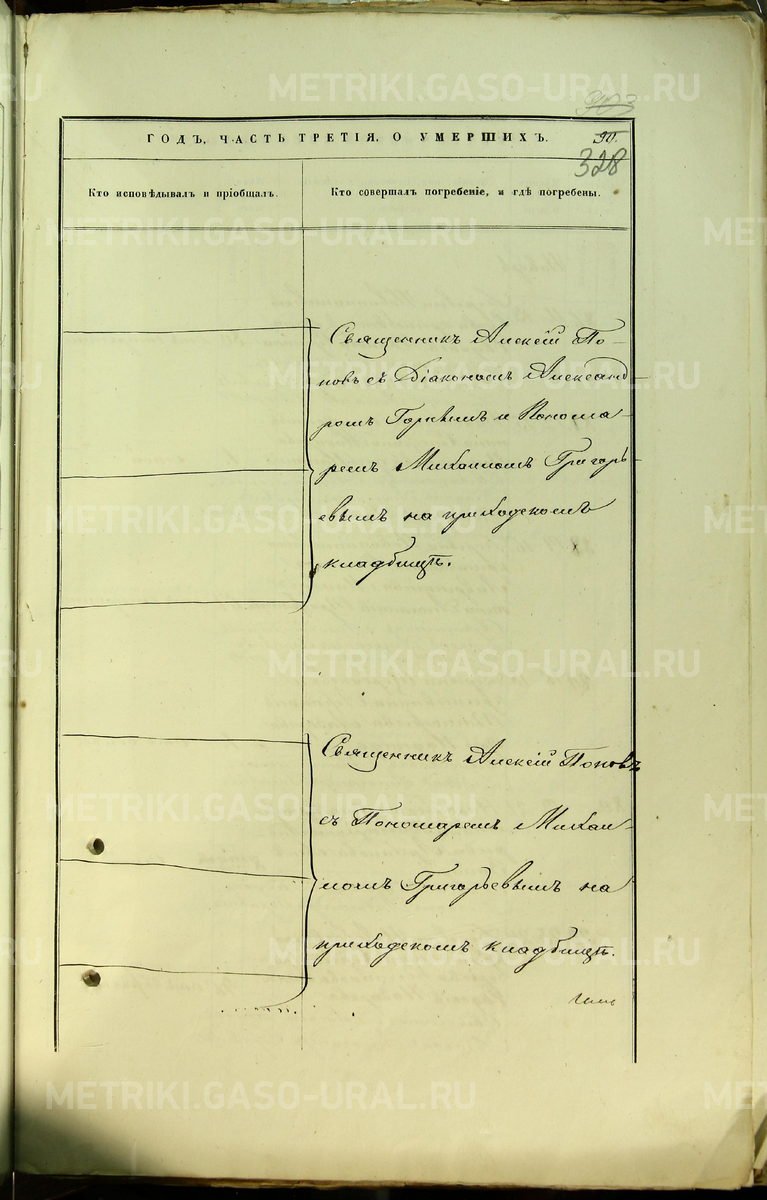 90.
328
ГОДЪ, ЧАСТЬ ТРЕТІЯ, О УМЕРШИХЪ.
Кто исповѣдывалъ и пріобщалъ.
Кто совершалъ погребеніе, и гдѣ погребены.
Священникъ Алексій По-
повъ съ Діакономъ Александ
ромъ и Понома-
ремъ Михаиломъ Григорь-
евымъ на приходскомъ
кладбищѣ.
Священникъ Алексій Поповъ
съ Пономаремъ Михаи-
ломъ Григорьевымъ на
приходскомъ кладбищѣ.
METRIKI.GASO-URAL.RU